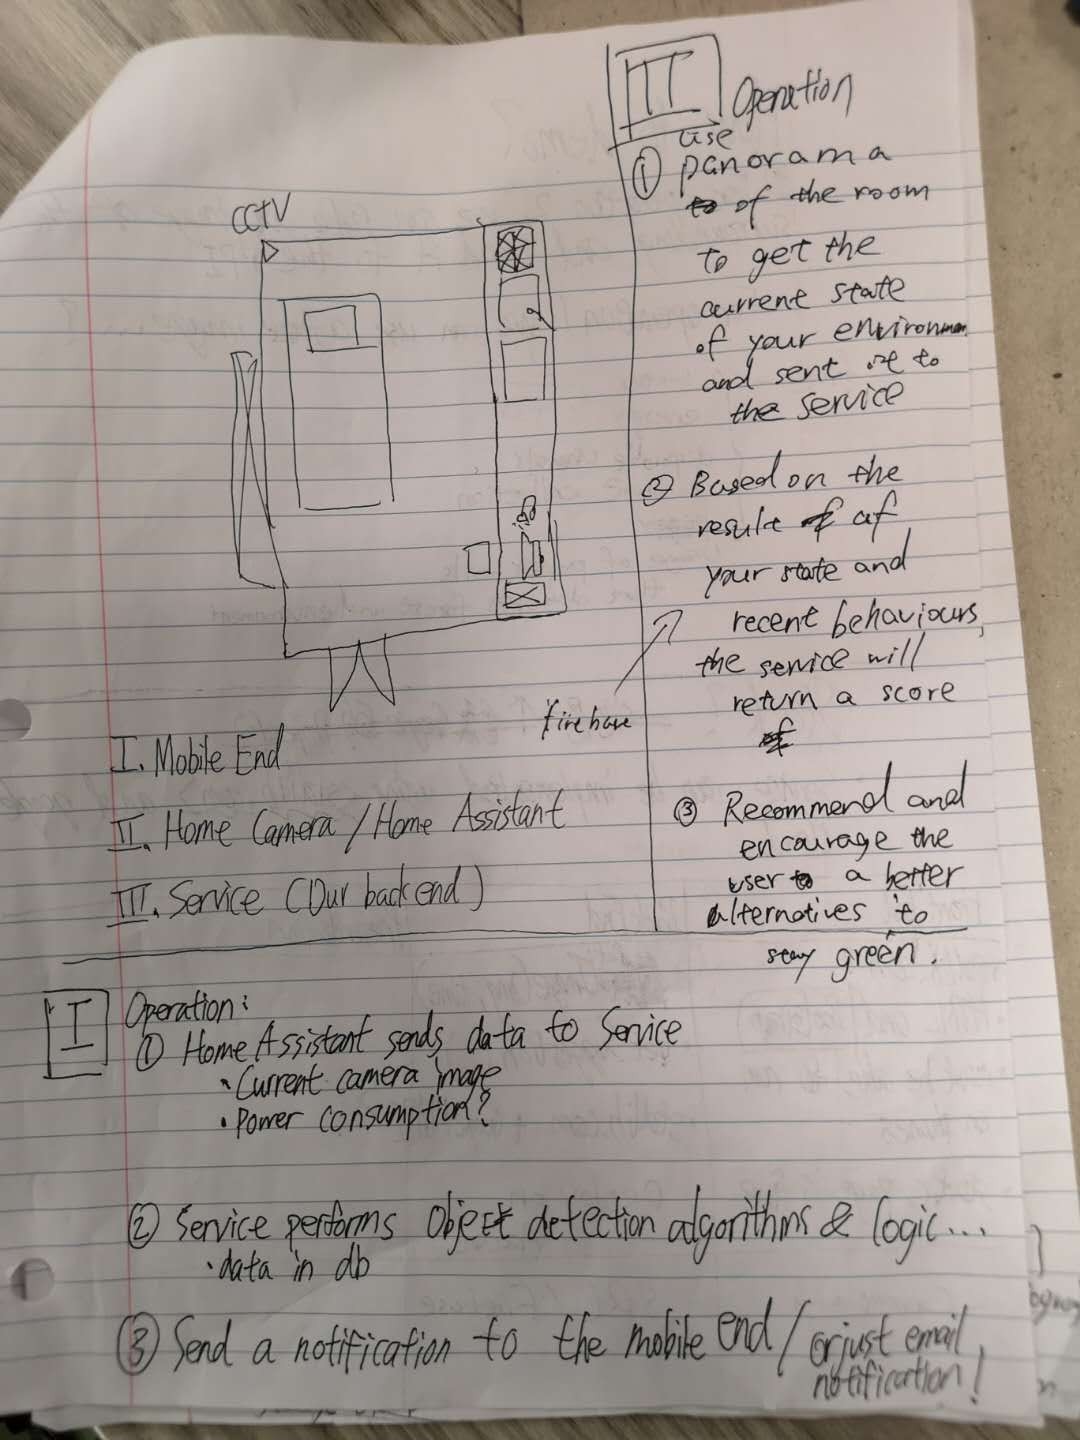 CCTV
I. Mobile End
II. Home Camera / Home Assistant
III. Service (Our backend)
II Operation
use
① panorama
of the room
to get the
current state
of your environmen
and sent it to
the service
② Based on the
result of
your state and
recent behaviours,
the service will
return a score
firebase
③ Recommend and
encourage the
user to a better
alternatives to
stay green.
I Operation:
① Home Assistant sends data to Service
• Current camera image
• Power consumption?
② Service performs Object detection algorithms & logic...
• data in db
③ Send a notification to the mobile end / or just email
notification!